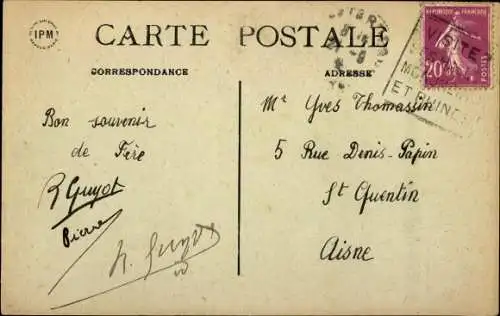 IPM
CARTE POSTALE
CORRESPONDANCE
ADRESSE
Bon souvenir
de Fère
R Guyot
Pierre
Mr Yves Thomassin
5 Rue Denis-Papin
St Quentin
Aisne
VISITE
ET RUINES
20c
POSTES